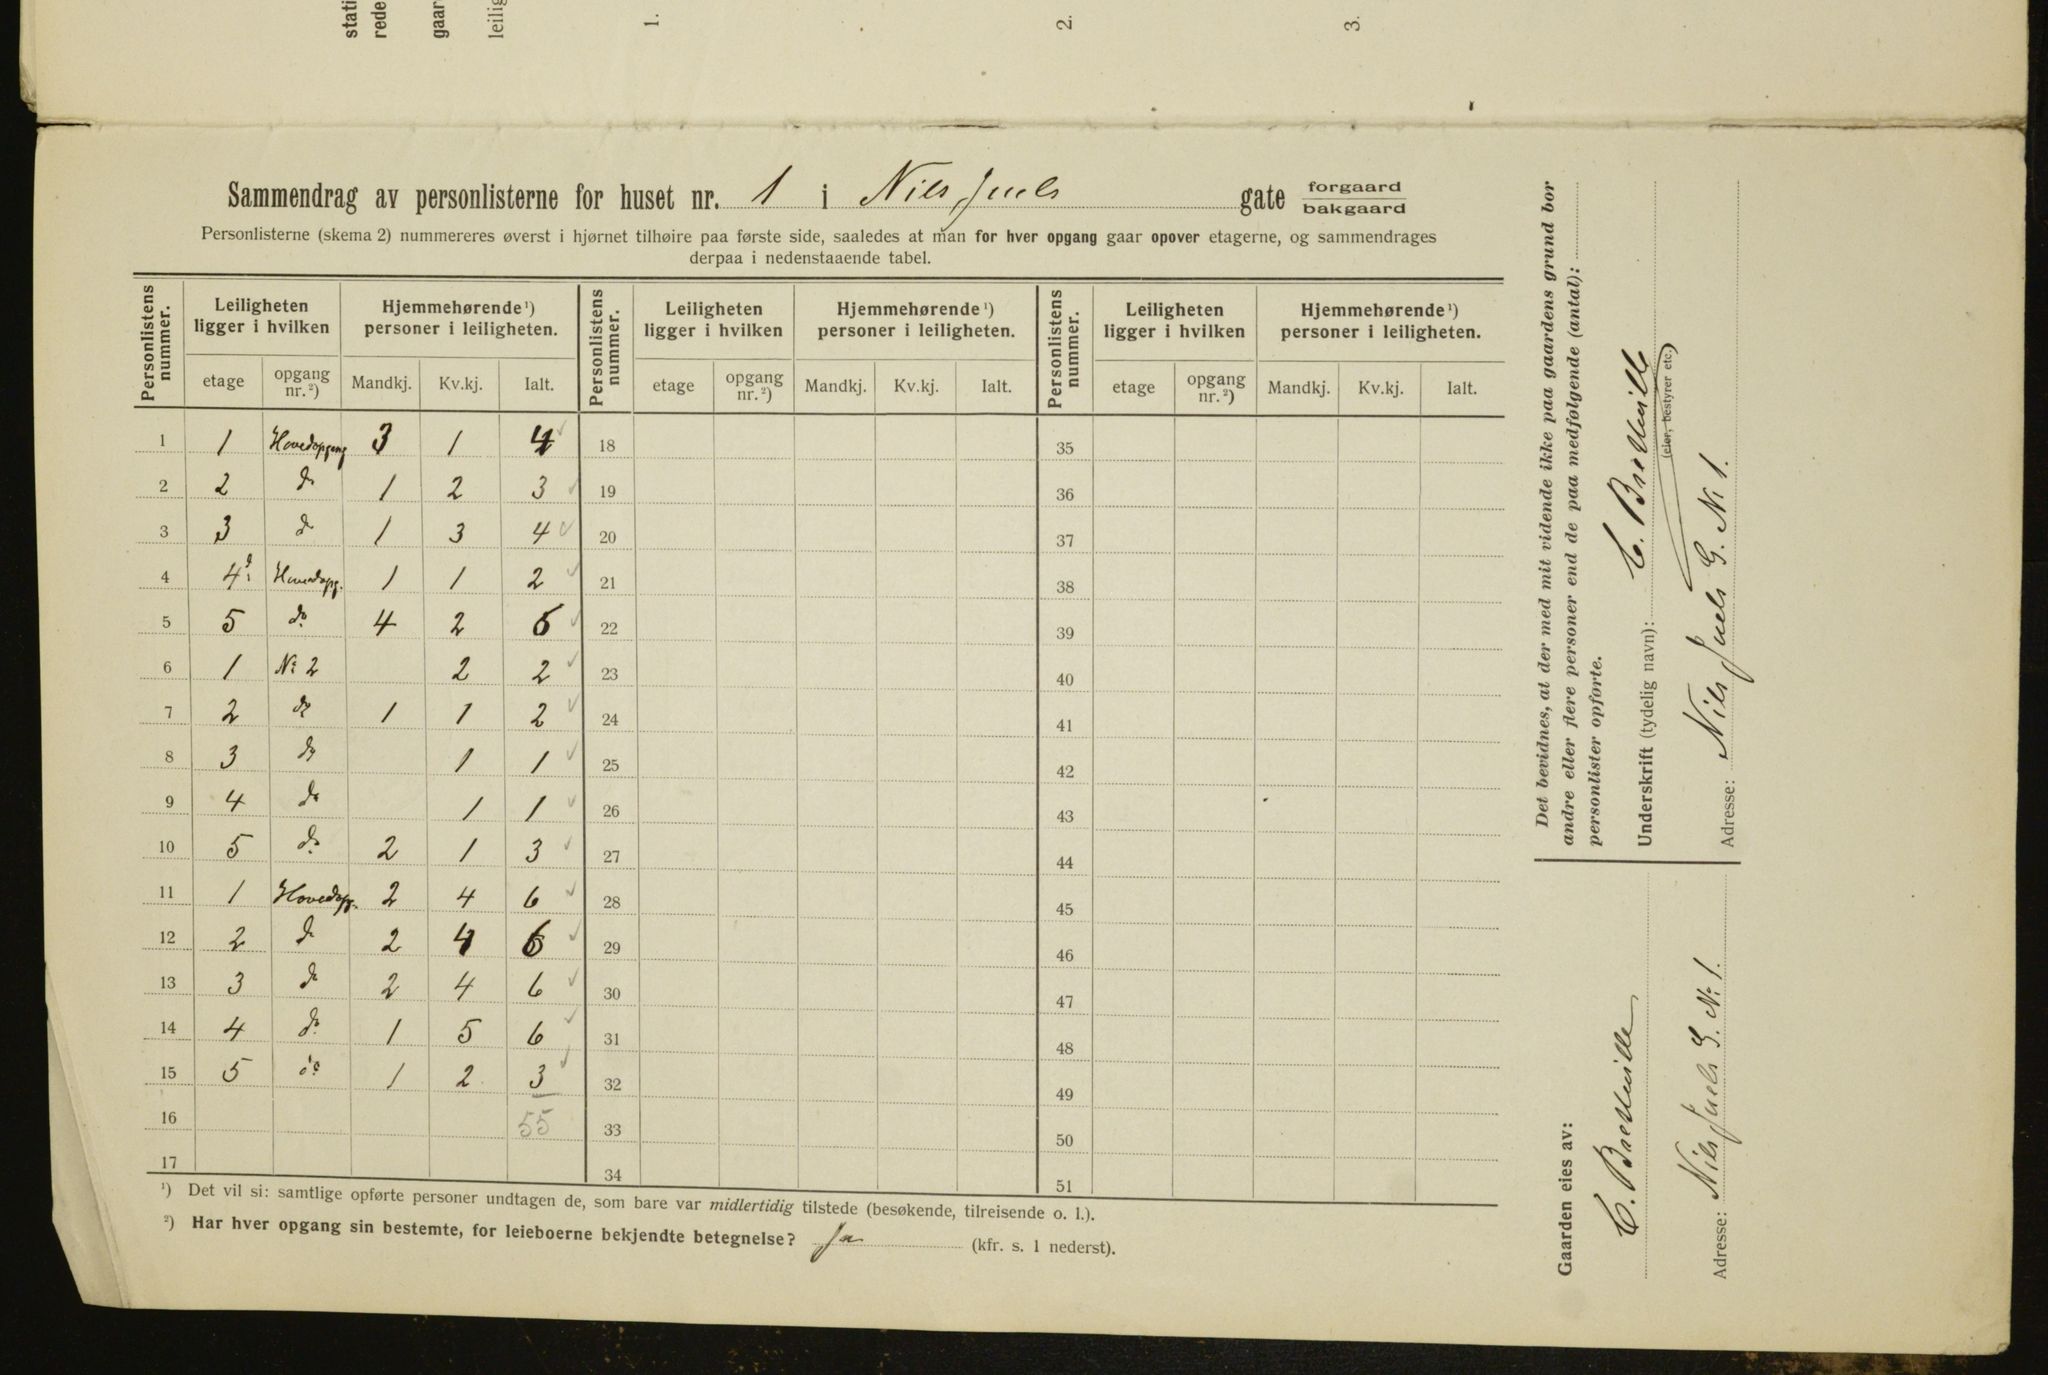 stati
rede
gaar
leilig
1.
2.
3.
Sammendrag av personlisterne for huset nr. 1 i Niels Juels gate forgaard
bakgaard
Personlisterne (skema 2) nummereres øverst i hjørnet tilhøire paa første side, saaledes at man for hver opgang gaar opover etagerne, og sammendrages
derpaa i nedenstaaende tabel.
Personlistens nummer. Leiligheten ligger i hvilken Hjemmehørende ¹) personer i leiligheten. Personlistens nummer. Leiligheten ligger i hvilken Hjemmehørende ¹) personer i leiligheten. Personlistens nummer. Leiligheten ligger i hvilken Hjemmehørende ¹) personer i leiligheten.
etage opgang nr. ²) Mandkj. Kv.kj. Ialt. etage opgang nr. ²) Mandkj. Kv.kj. Ialt. etage opgang nr. ²) Mandkj. Kv.kj. Ialt.
1 1 Hovedopgang 3 1 4 18 35
2 2 do 1 2 3 19 36
3 3 do 1 3 4 20 37
4 4 Hovedopg. 1 1 2 21 38
5 5 do 4 2 6 22 39
6 1 No 2 2 2 23 40
7 2 do 1 1 2 24 41
8 3 do 1 1 25 42
9 4 do 1 1 26 43
10 5 do 2 1 3 27 44
11 1 Hovedopg. 2 4 6 28 45
12 2 do 2 4 6 29 46
13 3 do 2 4 6 30 47
14 4 do 1 5 6 31 48
15 5 do 1 2 3 32 49
16 55 33 50
17 34 51
¹) Det vil si: samtlige opførte personer undtagen de, som bare var midlertidig tilstede (besøkende, tilreisende o. l.).
²) Har hver opgang sin bestemte, for leieboerne bekjendte betegnelse? Ja (kfr. s. 1 nederst).
Det bevidnes, at der med mit vidende ikke paa gaardens grund bor
andre eller flere personer end de paa medfølgende (antal):
personlister opførte.
Underskrift (tydelig navn): C.
(eier, bestyrer etc.)
Adresse: Niels Juels G. No 1.
Gaarden eies av:
C.
Adresse: Niels Juels G. No 1.